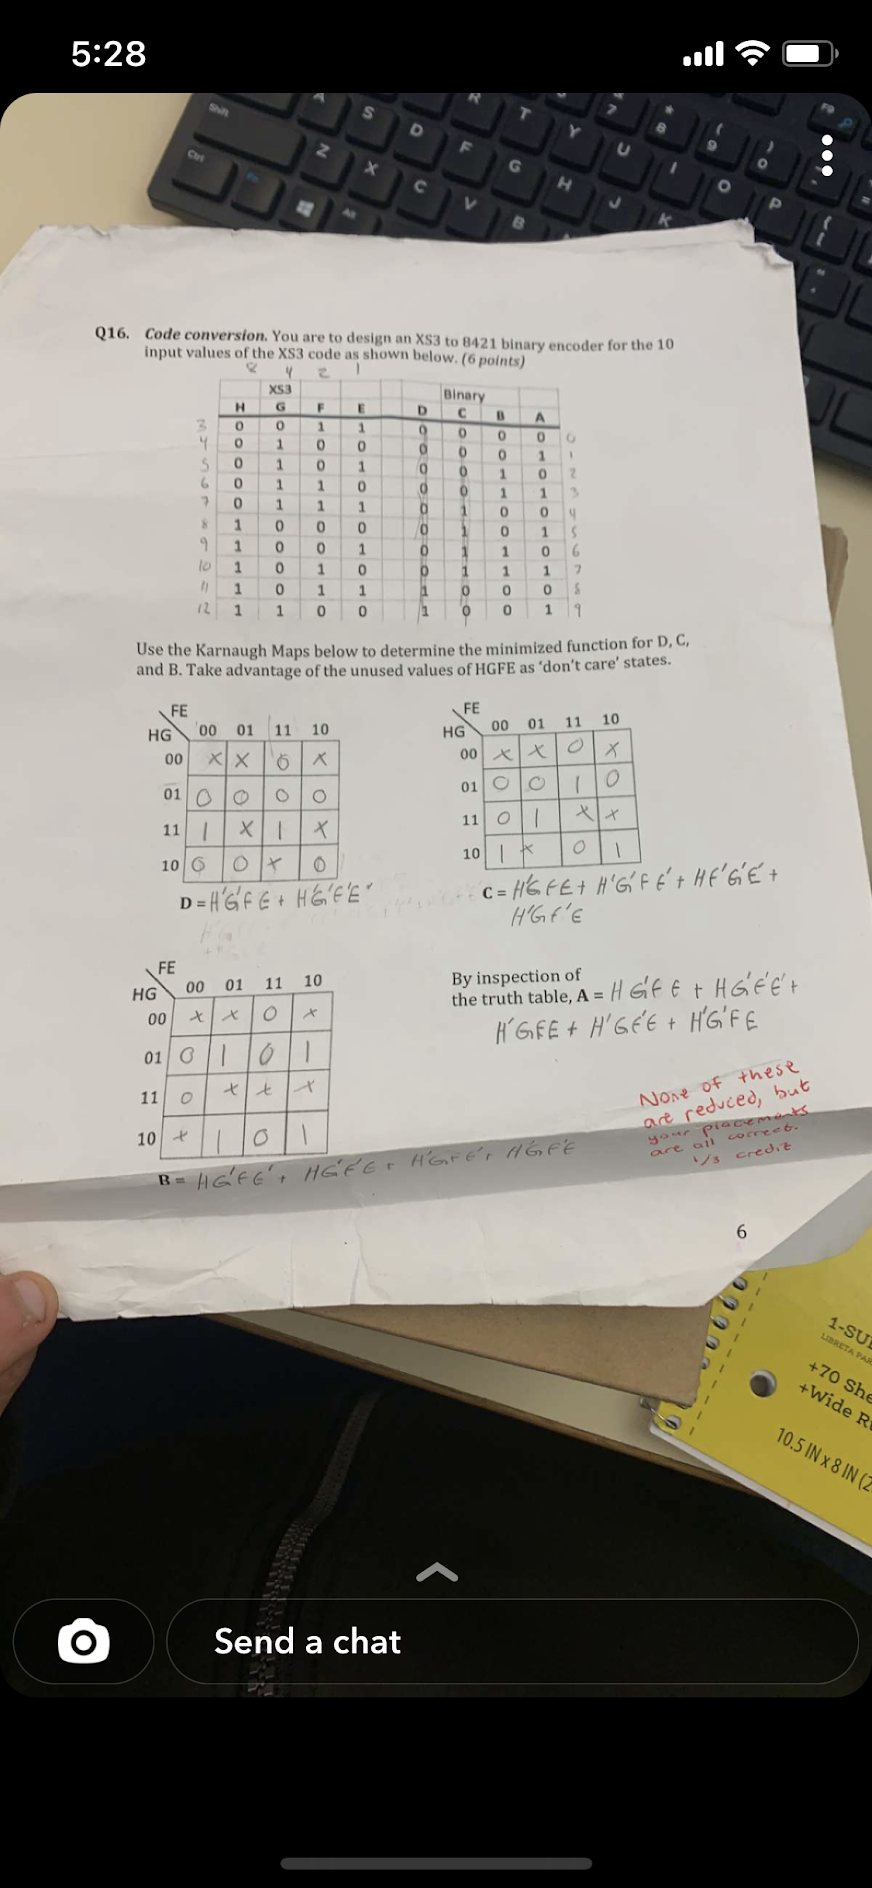 5:28
Q16. Code conversion. You are to design an XS3 to 8421 binary encoder for the 10
input values of the XS3 code as shown below. (6 points)
8 4 2 1
XS3 Binary
H G F E D C B A
3 0 0 1 1 0 0 0 0 0
4 0 1 0 0 0 0 0 1 1
5 0 1 0 1 0 0 1 0 2
6 0 1 1 0 0 0 1 1 3
7 0 1 1 1 0 1 0 0 4
8 1 0 0 0 0 1 0 1 5
9 1 0 0 1 0 1 1 0 6
10 1 0 1 0 0 1 1 1 7
11 1 0 1 1 1 0 0 0 8
12 1 1 0 0 1 0 0 1 9
Use the Karnaugh Maps below to determine the minimized function for D, C,
and B. Take advantage of the unused values of HGFE as 'don't care' states.
FE
HG 00 01 11 10
00 X X 0 X
01 0 0 0 0
11 1 X 1 X
10 0 0 X 0
D = H'G'FE + HG'F'E'
FE
HG 00 01 11 10
00 X X 0 X
01 0 0 1 0
11 0 1 X X
10 1 X 0 1
C = H'GFE + H'G'FE' + HF'G'E' +
H'GF'E
FE
HG 00 01 11 10
00 X X 0 X
01 0 1 0 1
11 0 X X X
10 X 1 0 1
B = HG'FE' + HG'F'E + H'GFE' + H'GF'E
By inspection of
the truth table, A = HG'FE + HG'F'E' +
H'GFE + H'GF'E + H'G'FE
None of these
are reduced, but
your placements
are all correct.
1/3 credit
6
1-SU
+70 She
+Wide R
10.5 IN x 8 IN
Shift
Ctrl
Send a chat